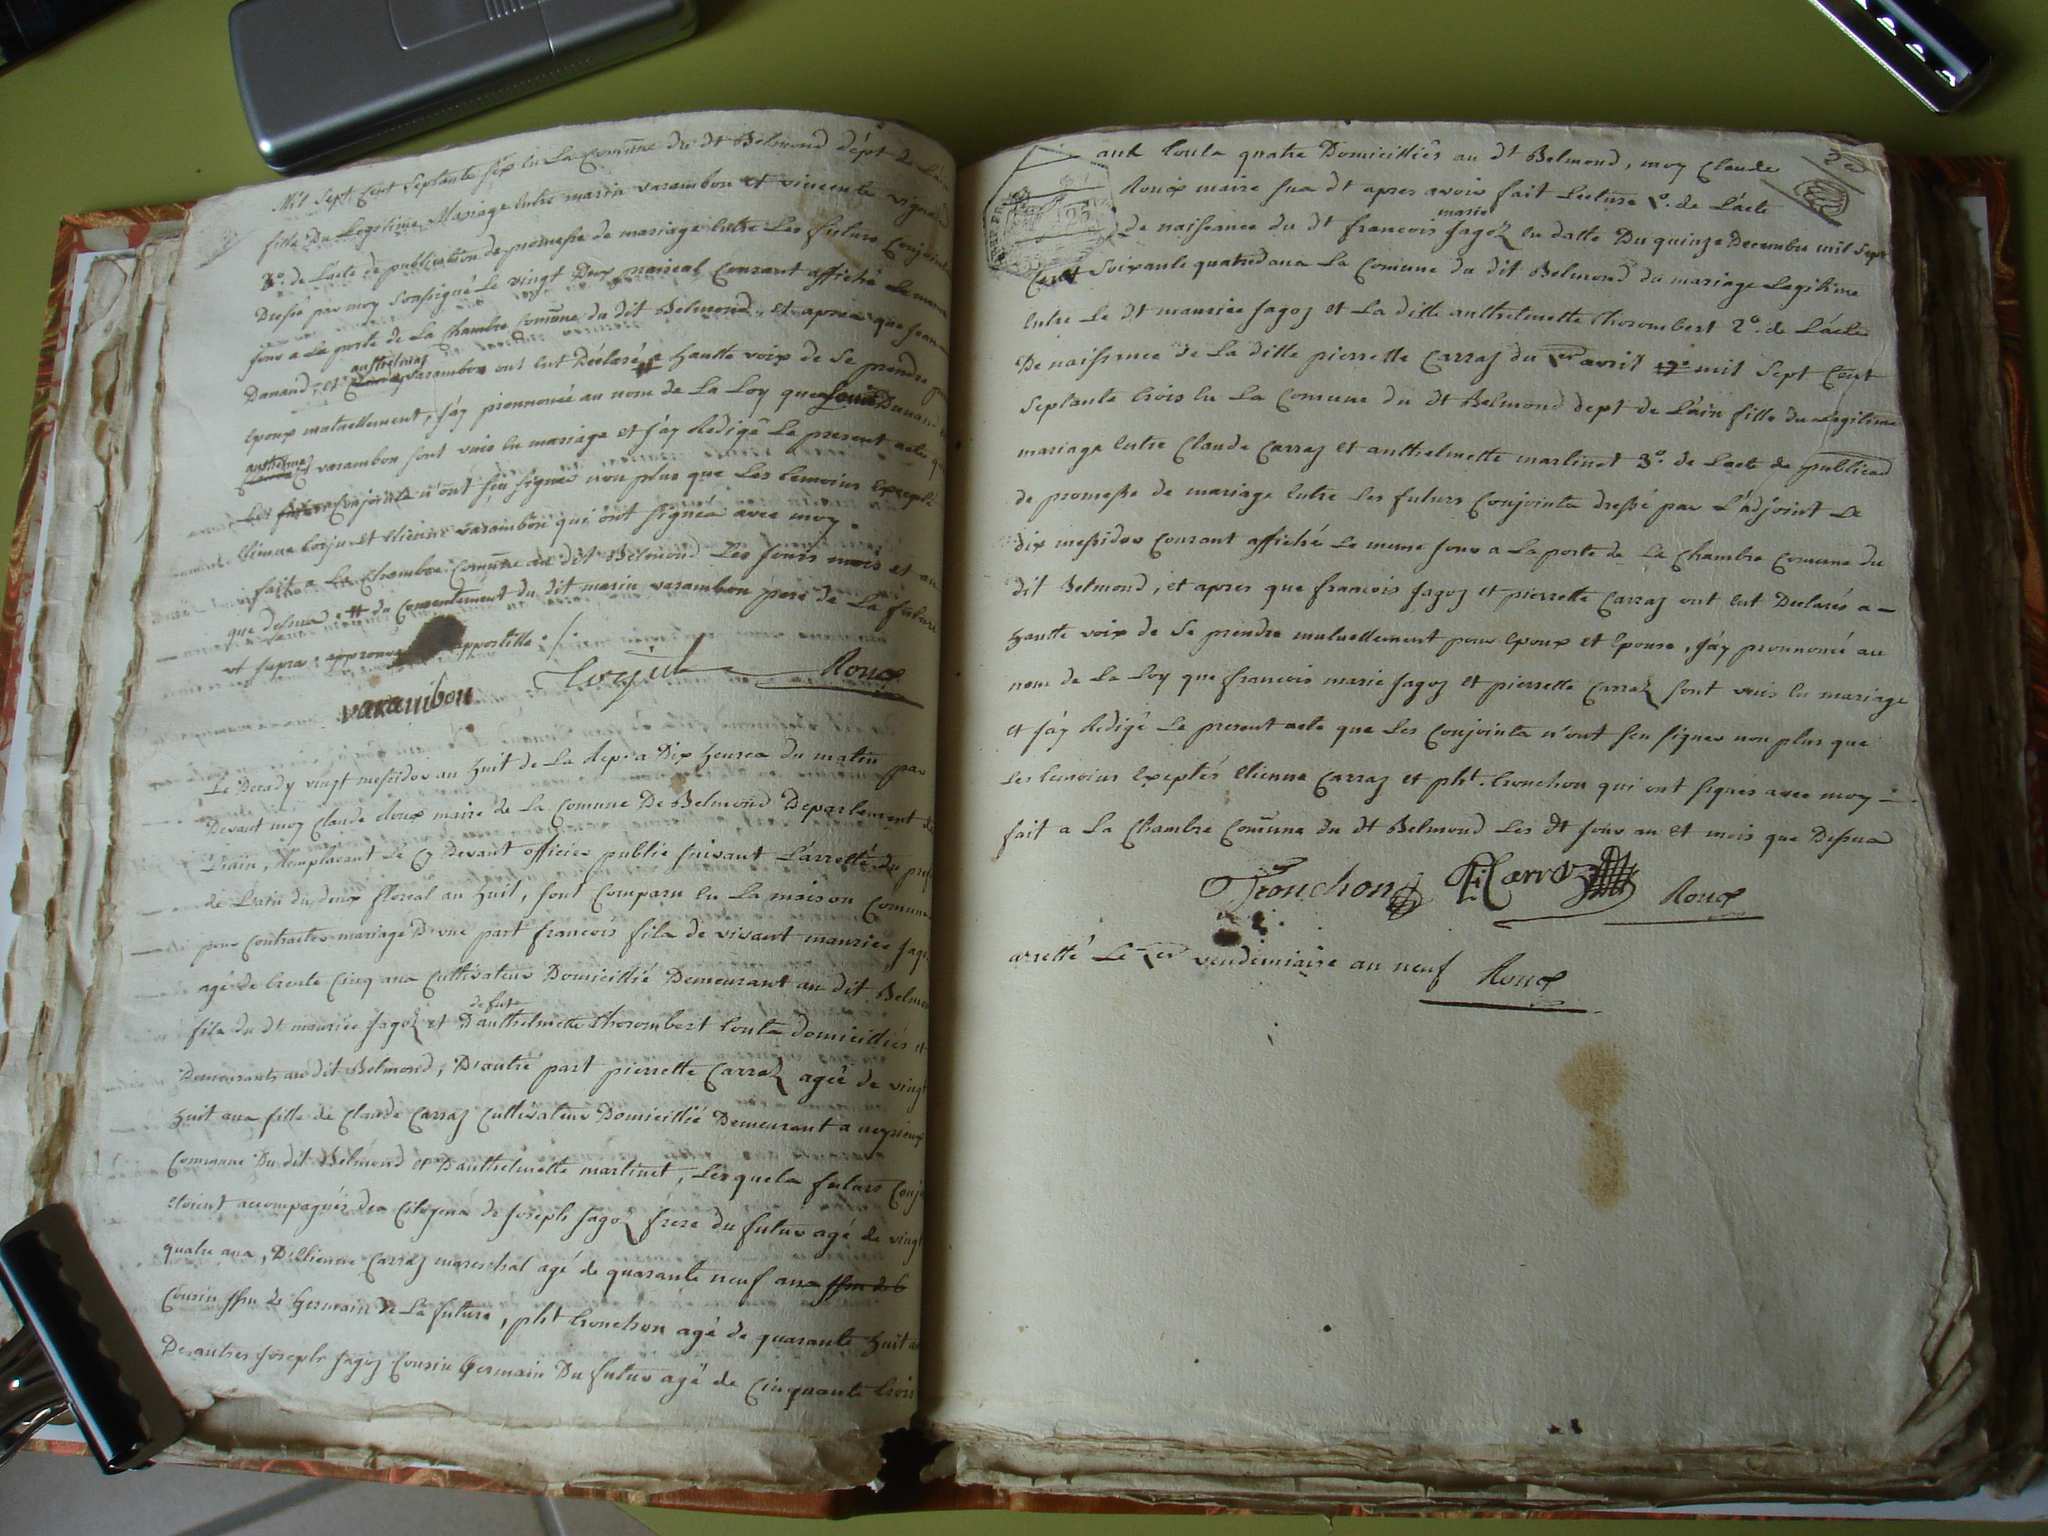 Mil Sept Cent Septante Six en La Comune du dt Belmond dépt de L'ain
fille du Legitime Mariage entre marin varambon et vincente vignand
3°. de L'acte de publication de promesse de mariage entre Les futurs Conjoints
Dressé par moy Soussigné Le vingt Deux prareal Courant affiché Le meme
jour a La porte de La Chambre Comune du dit Belmond, et apres que jean
Danand, et anthelmaz varambon ont eut Déclaré a haute voix de Se prendre pour
Epoux mutuellement, j'ay prononcé au nom de La Loy que Danand
anthelmaz varambon sont unis en mariage et j'ay Redigé Le present acte que
Les futurs Conjoints n'ont seu signer non plus que Les temoins Excepté
Etienne et Etienne varambon qui ont signés avec moy
fait a La Chambre Comune du dit Belmond Les jours mois et an
que dessus # du Consentement du dit marin varambon pere de La future
ut supra approuvé appostille
varambon Roux
Le Decady vingt messidor an huit de La Repa Dix heures du matin par
Devant moy Claude Roux maire de La Comune De Belmond Departement de
L'ain, Remplacant Le Cy Devant officier public suivant L'arretté du pref
de L'ain du deux floreal an huit, sont Comparu en La maison Comune
pour Contracter mariage D'une part francois fils de vivant maurice Jagoz
agé de trente Cinq ans Cultivateur Domicillié Demeurant au dit Belmond
fils du dt maurice Jagoz et defunte D'anthelmette thorombert touts domicilliés et
Demeurants au dit Belmond, D'autre part pierrette Carraz agée de vingt
huit ans fille de Claude Carraz Cultivateur Domicillié Demeurant a
Comune Du dit Belmond et D'anthelmette martinet, Lesquels futurs Conjoints
etoient accompagnés des Citoyens de joseph Jagoz frere du futur agé de vingt
quatre ans, D'Etienne Carraz mareschal agé de quarante neuf ans
Cousin de Germain de La future, pht trouchon agé de quarante huit ans
De autres joseph Jagoz Cousin Germain Du futur agé de Cinquante trois
ans touts quatre Domicilliés au dt Belmond, moy Claude
Roux maire sus dt apres avoir fait Lecture 1°. de L'acte
de naissance du dt francois marie Jagoz en datte Du quinze Decembre mil Sept
Cent Soixante quatre dans La Comune du dit Belmond du mariage Legitime
Entre Le dt maurice Jagoz et La ditte anthelmette thorombert 2°. de L'acte
De naissance de La ditte pierrette Carraz du 1er avril mil Sept Cent
Septante trois en La Comune du dt Belmond dept de L'ain fille du Legitime
mariage entre Claude Carraz et anthelmette martinet 3°. de L'acte de publicaon
de promesse de mariage Entre Les futurs Conjoints dressé par L'adjoint Le
dix messidor Courant affiché Le meme jour a La porte de La Chambre Comune du
dit Belmond, et apres que francois Jagoz et pierrette Carraz ont eut Declarés a
haute voix de Se prendre mutuellement pour Epoux et Epouse, j'ay prononcé au
nom de La Loy que francois marie Jagoz et pierrette Carraz sont unis en mariage
et j'ay Redigé Le present acte que Les Conjoints n'ont seu signer non plus que
Les temoins Exeptés Etienne Carraz et pht. trouchon qui ont signés avec moy
fait a La Chambre Comune du dt Belmond Les dt jour an et mois que Dessus
Trouchon E Carraz Roux
arretté Le 1er vendemiaire an neuf Roux